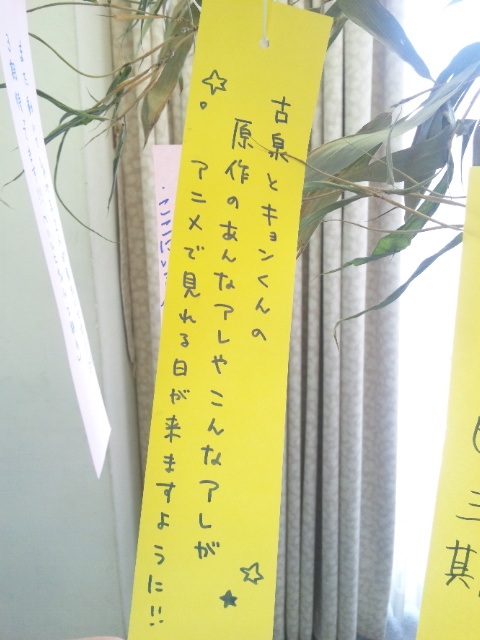 古泉とキョンくんの
原作のあんなアレやこんなアレが
アニメで見れる日が来ますように!!
三
其